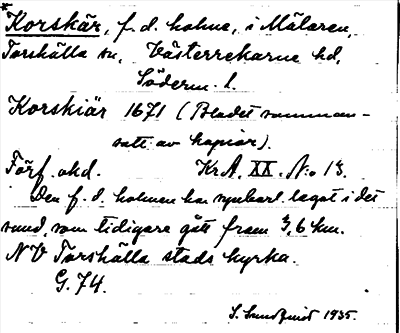 *Korskär, f. d. holme, i Mälaren,
Torshälla sn, Västerrekarne hd,
Söderm. l.
Korskiär 1671 (Bladet samman-
satt av kopior).
Förf. okd. KrA. XX. No 13.
Den f. d. holmen har uppenbarl. legat i det
sund, som tidigare gått fram 3,6 km.
NV Torshälla stads kyrka.
G. 74.
S. Sundqvist 1935.